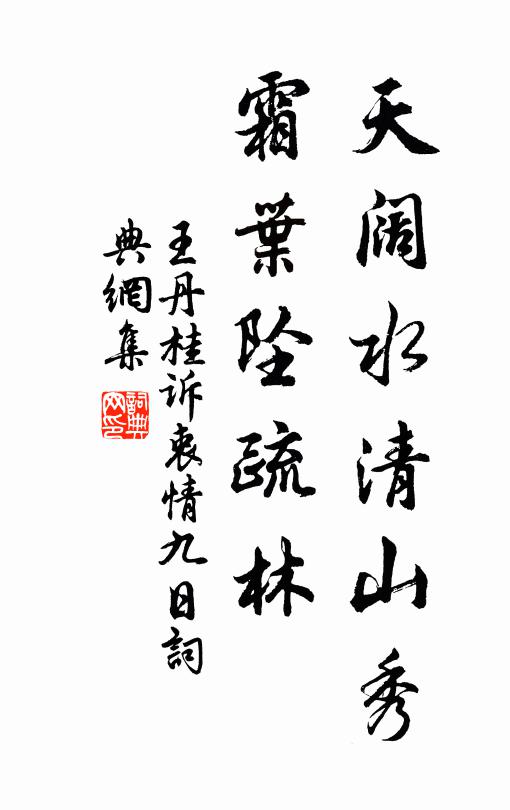 天阔水清山秀
霜葉坠疏林
王丹桂诉衷情九日詞
典網集
詞典网印